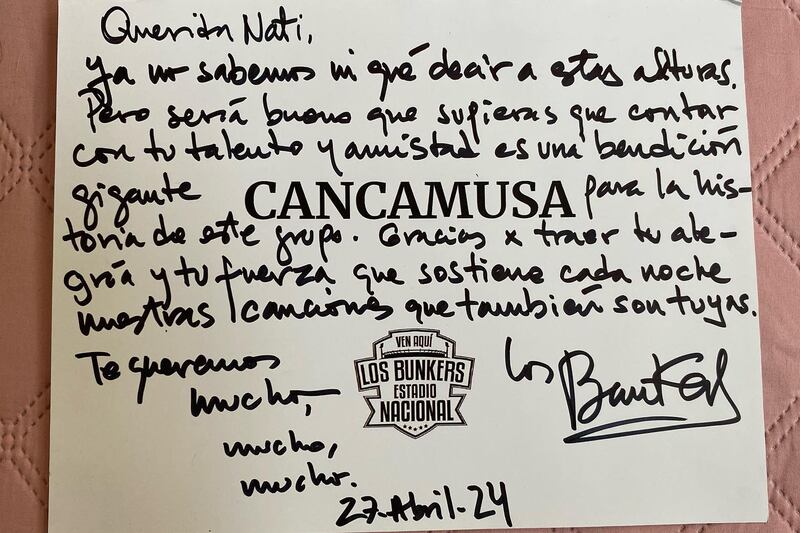 Querida Nati,
Ya no sabemos ni qué decir a estas alturas.
Pero sería bueno que supieras que contar
con tu talento y amistad es una bendición
gigante CANCAMUSA para la his-
toria de este grupo. Gracias x traer tu ale-
gría y tu fuerza que sostiene cada noche
nuestras canciones que también son tuyas.
Te queremos
mucho,
mucho,
mucho.
VEN AQUÍ
LOS BUNKERS
ESTADIO
NACIONAL
Los Bunkers
27-Abril-24